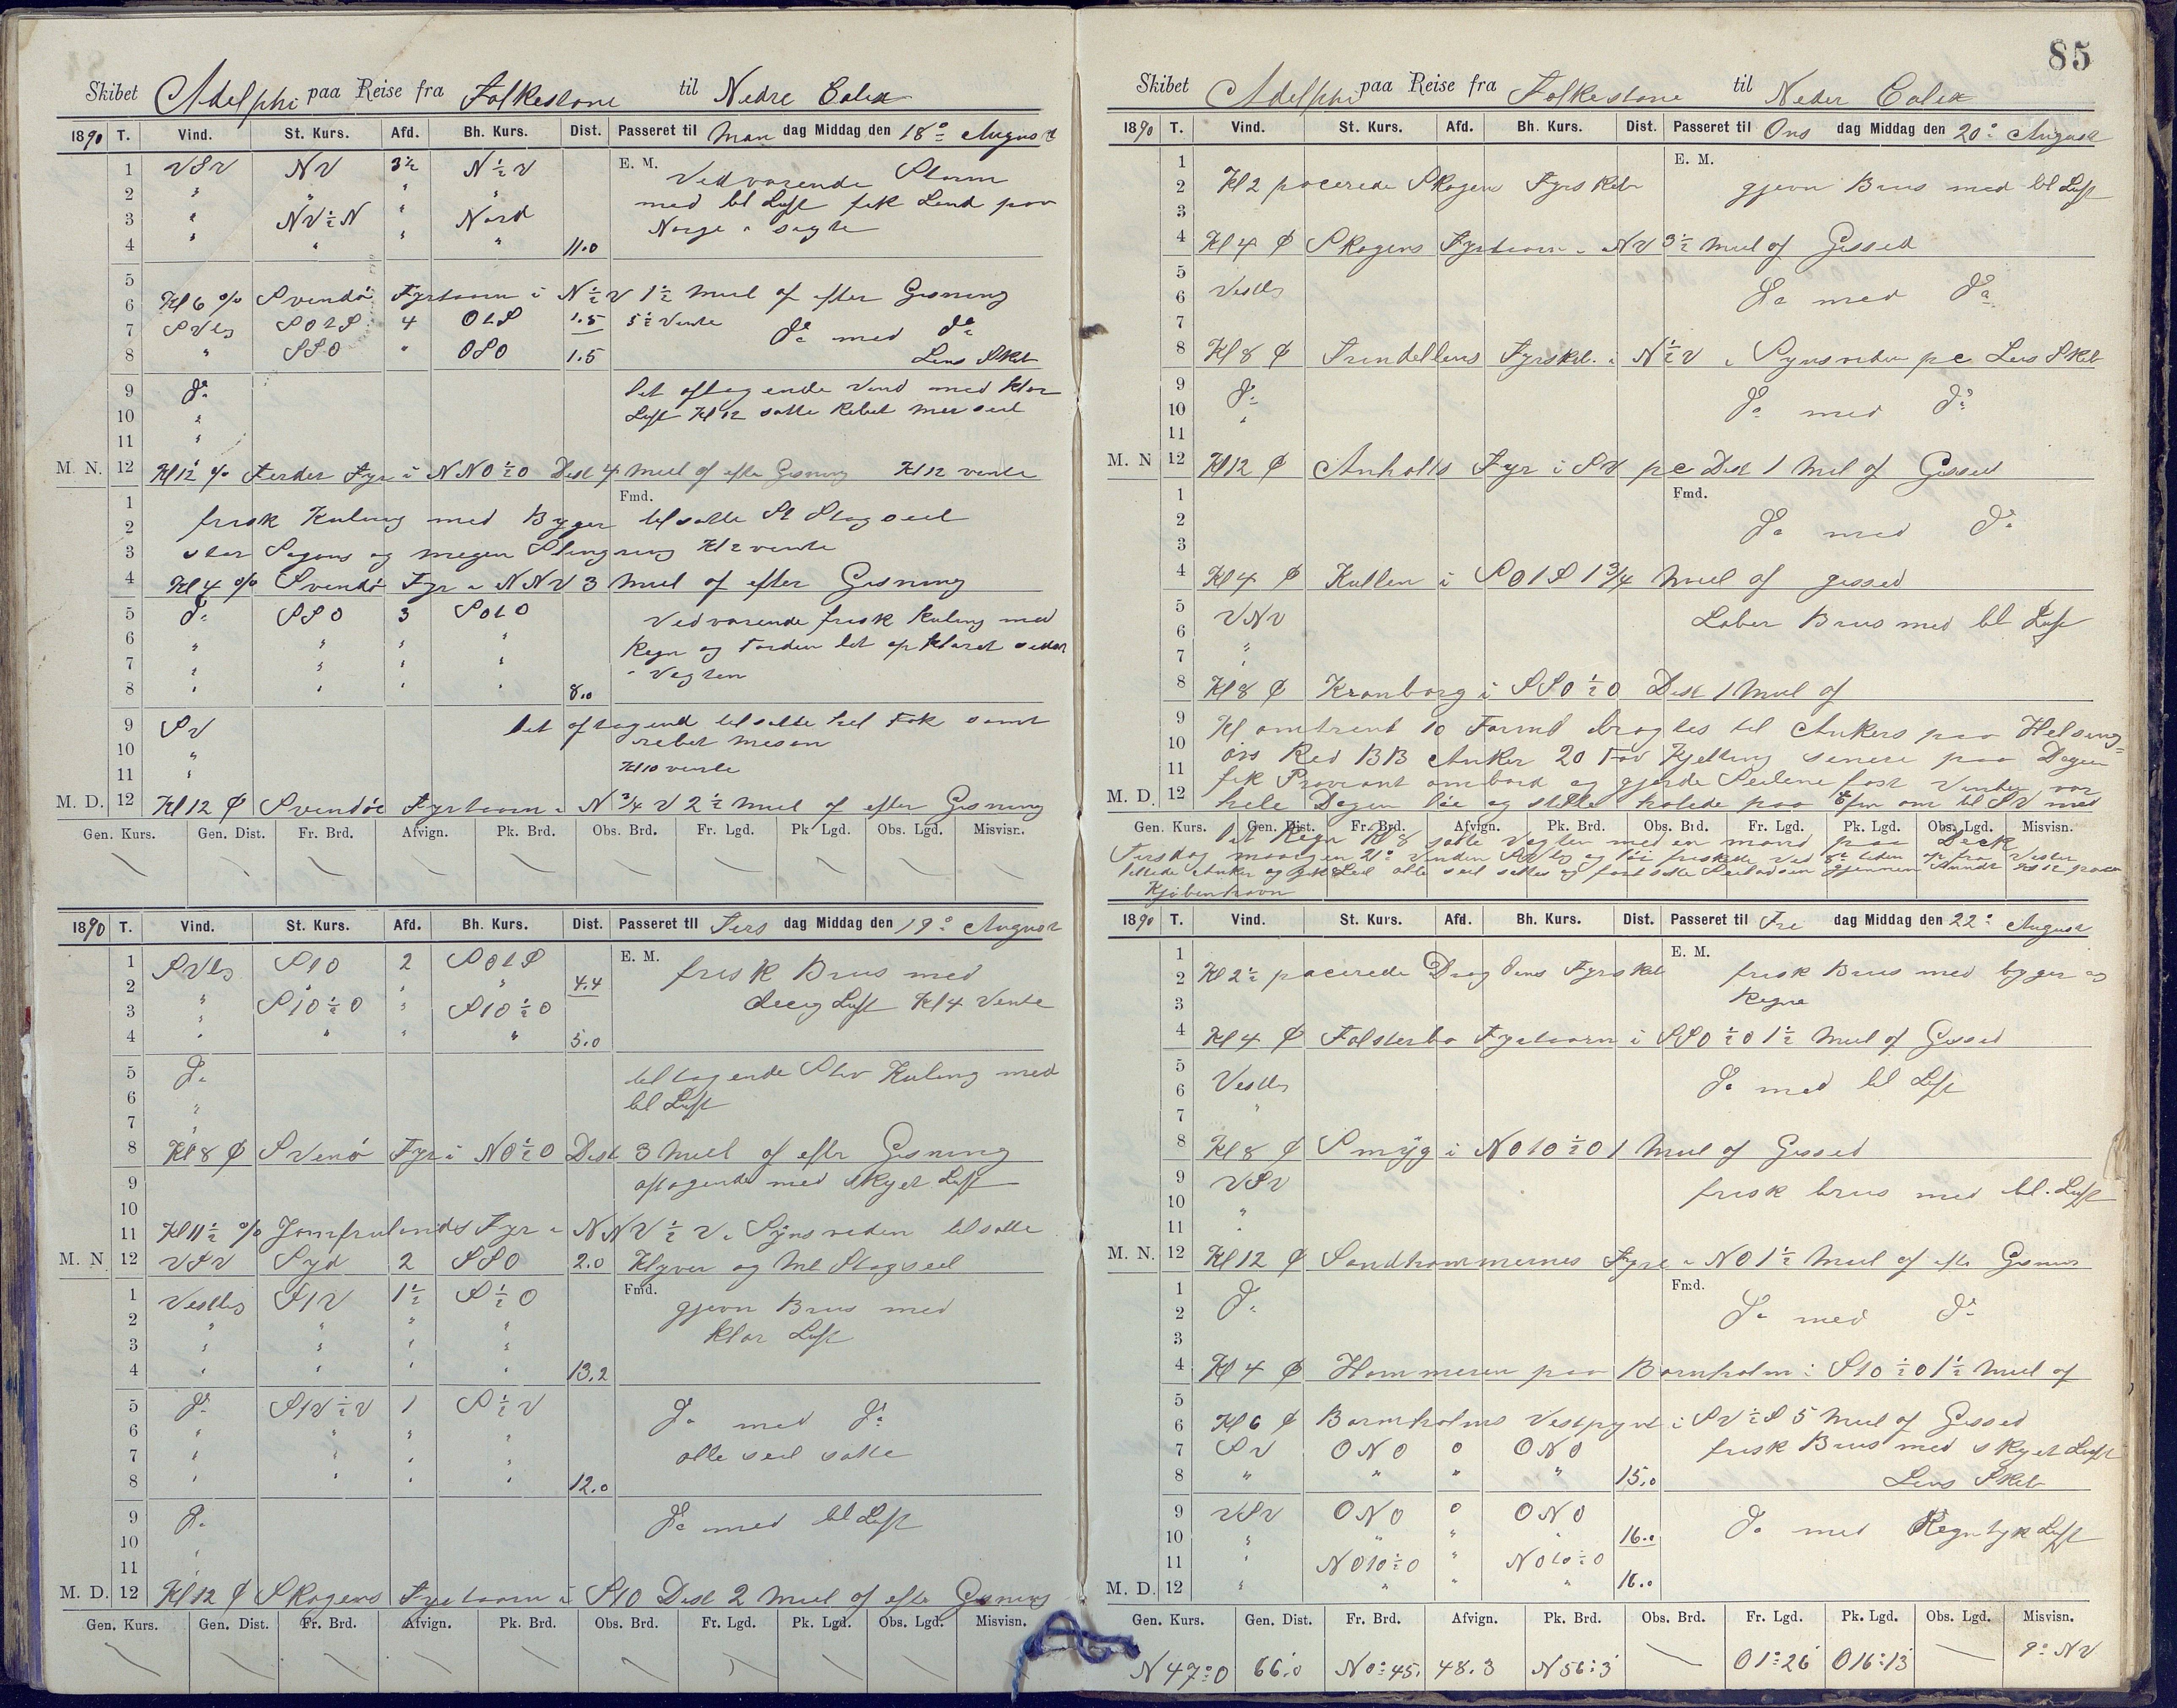 Skibet Adelphi paa Reise fra Folkestone til Nedre Calix
1890 T. Vind. St. Kurs. Afd. Bh. Kurs. Dist. Passeret til Man dag Middag den 18de August
1 VSV NV 3½ N½V E. M. Vedvarende Storm
2 " " " " med bl Luft fik Land paa
3 " NV½N " Nord Norge i sigte
4 " " " " 11.0
5
6 Kl 6 % Svendö Fyrtaarn i N½V 1½ Mul af efter Gisning
7 SVlg SOlS 4 OlS 1.5 5½ Vente do med do
8 " SSO " OSO 1.5 Lens Skib
9 do let aftagende Vind med klar
10 " Luft Kl 12 satte Rebet Mersseil
11 "
M. N. 12 Kl 12 % Ferder Fyr i NNO½O Dist 4 Mul af efter Gisning Kl 12 vente
Fmd.
1 frisk Kuling med Byger tilsatte St Stagseil
2
3 stor Sögang og megen Slingring Kl 2 vente
4 Kl 4 % Svendö Fyr i NNV 3 Mul af efter Gisning
5 do SSO 3 SOlO Vedvarende frisk Kuling med
6 " " " " Regn og Torden let opklaret sidst
7 " " " " i Vagten
8 " " " " 8.0
9 SV let aftagend tilsatte hel Fok samt
10 " rebet Mesan
11 " Kl 10 vente
M. D. 12 Kl 12 ϕ Svendöe Fyrtaarn i N¾V 2½ Mul af efter Gisning
Gen. Kurs. Gen. Dist. Fr. Brd. Afvign. Pk. Brd. Obs. Brd. Fr. Lgd. Pk. Lgd. Obs. Lgd. Misvisn.
1890 T. Vind. St. Kurs. Afd. Bh. Kurs. Dist. Passeret til Tirs dag Middag den 19de August
1 SVlg SlO 2 SOlS E. M. frisk Brus med
2 " " " " 4.4
3 " SlO½O " SlO½O deeig Luft Kl 4 Vente
4 " " " " 5.0
5 do tiltagende Stiv Kuling med
6 " bl Luft
7 "
8 Kl 8 ϕ Svenö Fyr i NO½O Dist 3 Mul af efter Gisning
9 aftagende med skyet Luft
10
11 Kl 11½ % Jomfrulands Fyr i NNV½V i Synsreden tilsatte
M. N. 12 VSV Syd 2 SSO 2.0 Klyver og Ml Stagseil
1 Vestlig SlV 1½ S½O Fmd. gjevn Brus med
2 " " " " klar Luft
3 " " " "
4 " " " " 13.2
5 do SlV½V 1 S½V do med do
6 " " " "
7 " " " " alle seil satte
8 " " " " 12.0
9 do do med bl Luft
10
11 "
M. D. 12 Kl 12 ϕ Skagens Fyrtaarn i SlO Dist 2 Mul af efter Gisning
Gen. Kurs. Gen. Dist. Fr. Brd. Afvign. Pk. Brd. Obs. Brd. Fr. Lgd. Pk. Lgd. Obs. Lgd. Misvisn.
85
Skibet Adelphi paa Reise fra Folkestone til Neder Calix
1890 T. Vind. St. Kurs. Afd. Bh. Kurs. Dist. Passeret til Ons dag Middag den 20de August
1 E. M.
2 Kl 2 pacerede Skagens Fyrskib gjevn Brus med bl Luft
3
4 Kl 4 ϕ Skagens Fyrtaarn i NV 3½ Mul af Gissed
5
6 Vestlg do med do
7
8 Kl 8 ϕ Trindellens Fyrskib i N½V i Synsreden pc Lens Skib
9 do
10 " do med do
11
M. N 12 Kl 12 ϕ Anholts Fyr i SV pc Dist 1 Mul af Gissed
1 Fmd.
2 do med do
3
4 Kl 4 ϕ Kullen i SOlS 1¾ Mul af gissed
5
6 VNV Laber Brus med bl Luft
7 "
8 Kl 8 ϕ Kronborg i SSO½O Dist 1 Mul af
9 Kl omtrent 10 Formd bragtes til Ankers paa Helsing=
10 örs Red BB Anker 20 Fav Kjetting senere paa Dagen
11 fik Proviant ombord og gjorde Seilene fast Vinden var
M. D. 12 hele Dagen löi og stille holede paa Efm om til SV med
Gen. Kurs. Gen. Dist. Fr. Brd. Afvign. Pk. Brd. Obs. Brd. Fr. Lgd. Pk. Lgd. Obs. Lgd. Misvisn.
let Regn Kl 8 satte Vagten med en mand paa Deck
Torsdag morgen 21de Vinden SVlg og löi friskede ved 8de tiden op fra Vester
lettede Anker og gik Seil alle seil sattes og fortsatte Seiladsen gjennem Sundet
Kjöbenhavn
1890 T. Vind. St. Kurs. Afd. Bh. Kurs. Dist. Passeret til Fre dag Middag den 22de August
1 E. M.
2 Kl 2½ pacerede Drogdens Fyrskib frisk Brus med byger og
3 Regne
4 Kl 4 ϕ Falsterbo Fyrtaarn i SSO½O 1½ Mul af Gissed
5
6 Vestlg do med bl Luft
7 "
8 Kl 8 ϕ Smyg i NOlO½O 1 Mul af Gissed
9 VSV frisk brus med bl. Luft
10 "
11 "
M. N. 12 Kl 12 ϕ Sandhammernes Fyre i NO 1½ Mul af eftr Gisning
1 Fmd.
2 do do med do
3
4 Kl 4 ϕ Hammeren paa Bornholm i SlO½O 1½ Mul af
5
6 Kl 6 ϕ Bornholms Vestpynt i SV½S 5 Mul af Gissed
7 SV ONO 0 ONO frisk Brus med skyet Luft
8 " " " " 15.0 Lens Skib
9 VSV ONO 0 ONO
10 " " " " 16.0 do med Regntyk Luft
11 " NOlO½O " NOlO½O
M. D. 12 " " " " 16.0
Gen. Kurs. Gen. Dist. Fr. Brd. Afvign. Pk. Brd. Obs. Brd. Fr. Lgd. Pk. Lgd. Obs. Lgd. Misvisn.
N47°O 66.0 N0°45' 48.3 N56°3' O1°26' O16°13' 9° NV